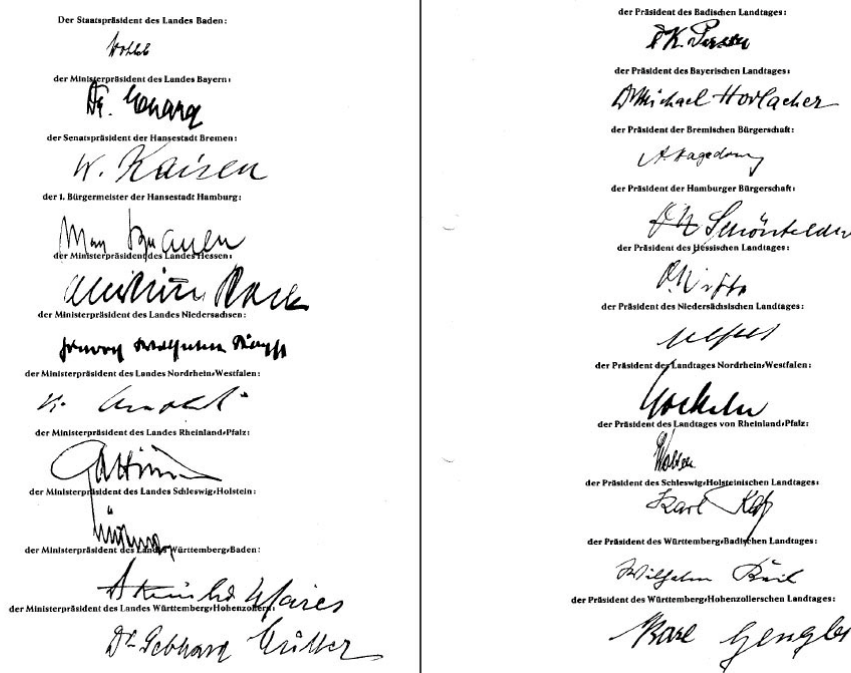 Der Staatspräsident des Landes Baden:
Wohleb
der Ministerpräsident des Landes Bayern:
Dr. Ehard
der Senatspräsident der Hansestadt Bremen:
W. Kaisen
der 1. Bürgermeister der Hansestadt Hamburg:
Max Brauer
der Ministerpräsident des Landes Hessen:
Christian Stock
der Ministerpräsident des Landes Niedersachsen:
Hinrich Wilhelm Kopf
der Ministerpräsident des Landes Nordrhein-Westfalen:
K. Arnold
der Ministerpräsident des Landes Rheinland-Pfalz:
Altmeier
der Ministerpräsident des Landes Schleswig-Holstein:
Lüdemann
der Ministerpräsident des Landes Württemberg-Baden:
Reinhold Maier
der Ministerpräsident des Landes Württemberg-Hohenzollern:
Dr. Gebhard Müller
der Präsident des Badischen Landtages:
Dr. K. Person
der Präsident des Bayerischen Landtages:
Dr Michael Horlacher
der Präsident der Bremischen Bürgerschaft:
A. Hagedorn
der Präsident der Hamburger Bürgerschaft:
Schönfelder
der Präsident des Hessischen Landtages:
O. Witte
der Präsident des Niedersächsischen Landtages:
der Präsident des Landtages Nordrhein-Westfalen:
Gockeln
der Präsident des Landtages von Rheinland-Pfalz:
Wolters
der Präsident des Schleswig-Holsteinischen Landtages:
Karl
der Präsident des Württemberg-Badischen Landtages:
Wilhelm Keil
der Präsident des Württemberg-Hohenzollerschen Landtages:
Karl Gengler